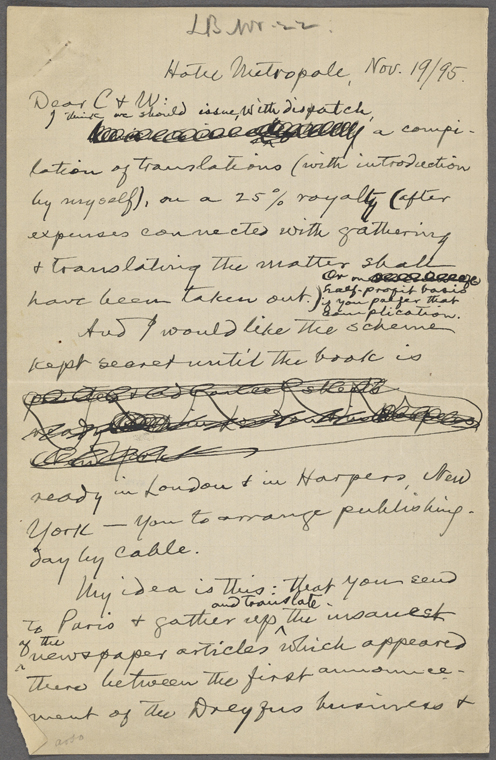 LB Nr. 22.
Hotel Metropole, Nov. 19/95.
Dear C & W:
I think we should issue, with dispatch,
a compi-
lation of translations (with introduction
by myself), on a 25% royalty (after
expenses connected with gathering
& translating the matter shall
Or on
half-profit basis
have been taken out.)
if you prefer that
complication.
And I would like the scheme
kept secret until the book is
ready in London & in Harpers, New
York — you to arrange publishing-
day by cable.
My idea is this: that you send
and translate
to Paris & gather up the insanest
of the
newspaper articles ^ which appeared
there between the first announce-
ment of the Dreyfus business &